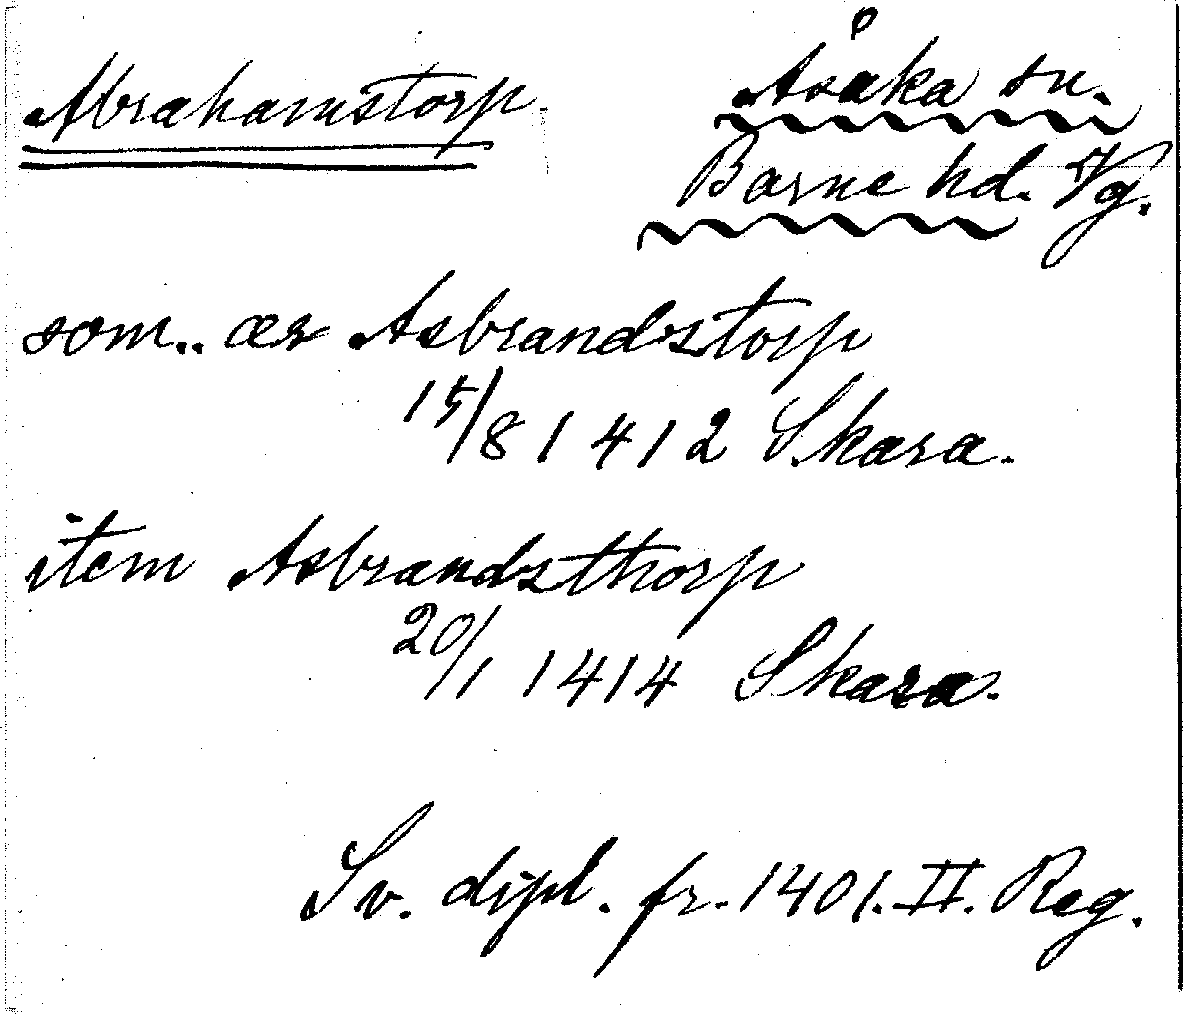 Abrahamstorp.
Åsaka sn.
Barne hd. Vg.
som.. ær Asbrandstorp
15/8 1412 Skara.
item Asbrandsthorp
20/1 1414 Skara.
Sv. dipl. fr. 1401. II. Reg.